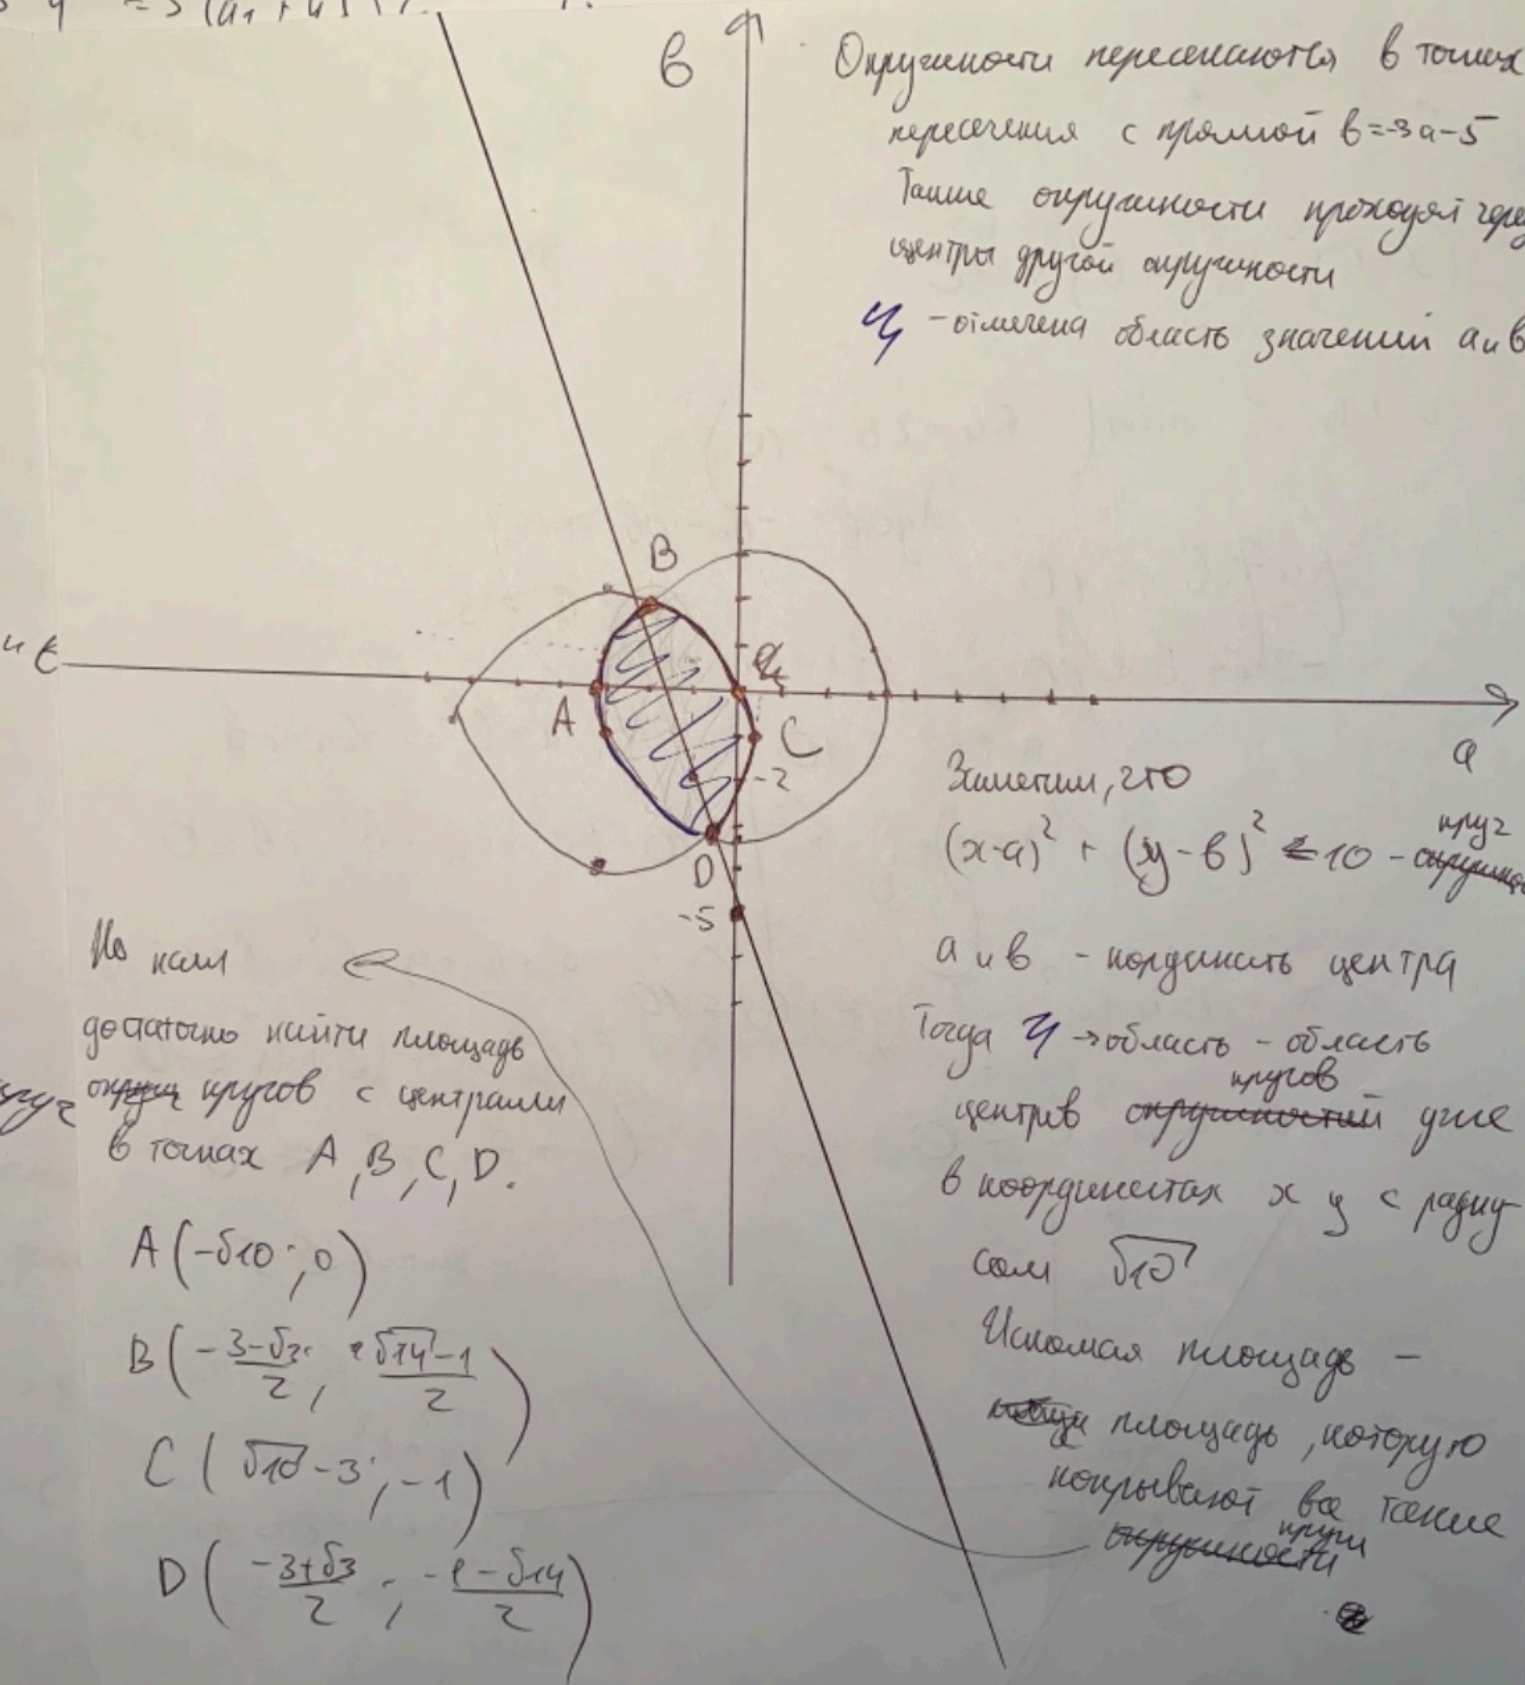 в
Окружности пересекаются в точках
пересечения с прямой в=-3а-5
Также окружности проходят через
центры другой окружности
- отмечена область значений а и в
В
А
С
-2
D
-5
а
Заметим, что
(x-a)² + (y-в)² ≤ 10 - круг
а и в - кординать центра
Тогда → область - область
центров кругов уже
в координатах x y с радиу-
сом √10
Искомая площадь -
площадь, которую
покрывают все такие
круги
Но нам
достаточно найти площадь
кругов с центрами
в точках A, B, C, D.
A(-√10; 0)
B(
C(√10-3; -1)
D(